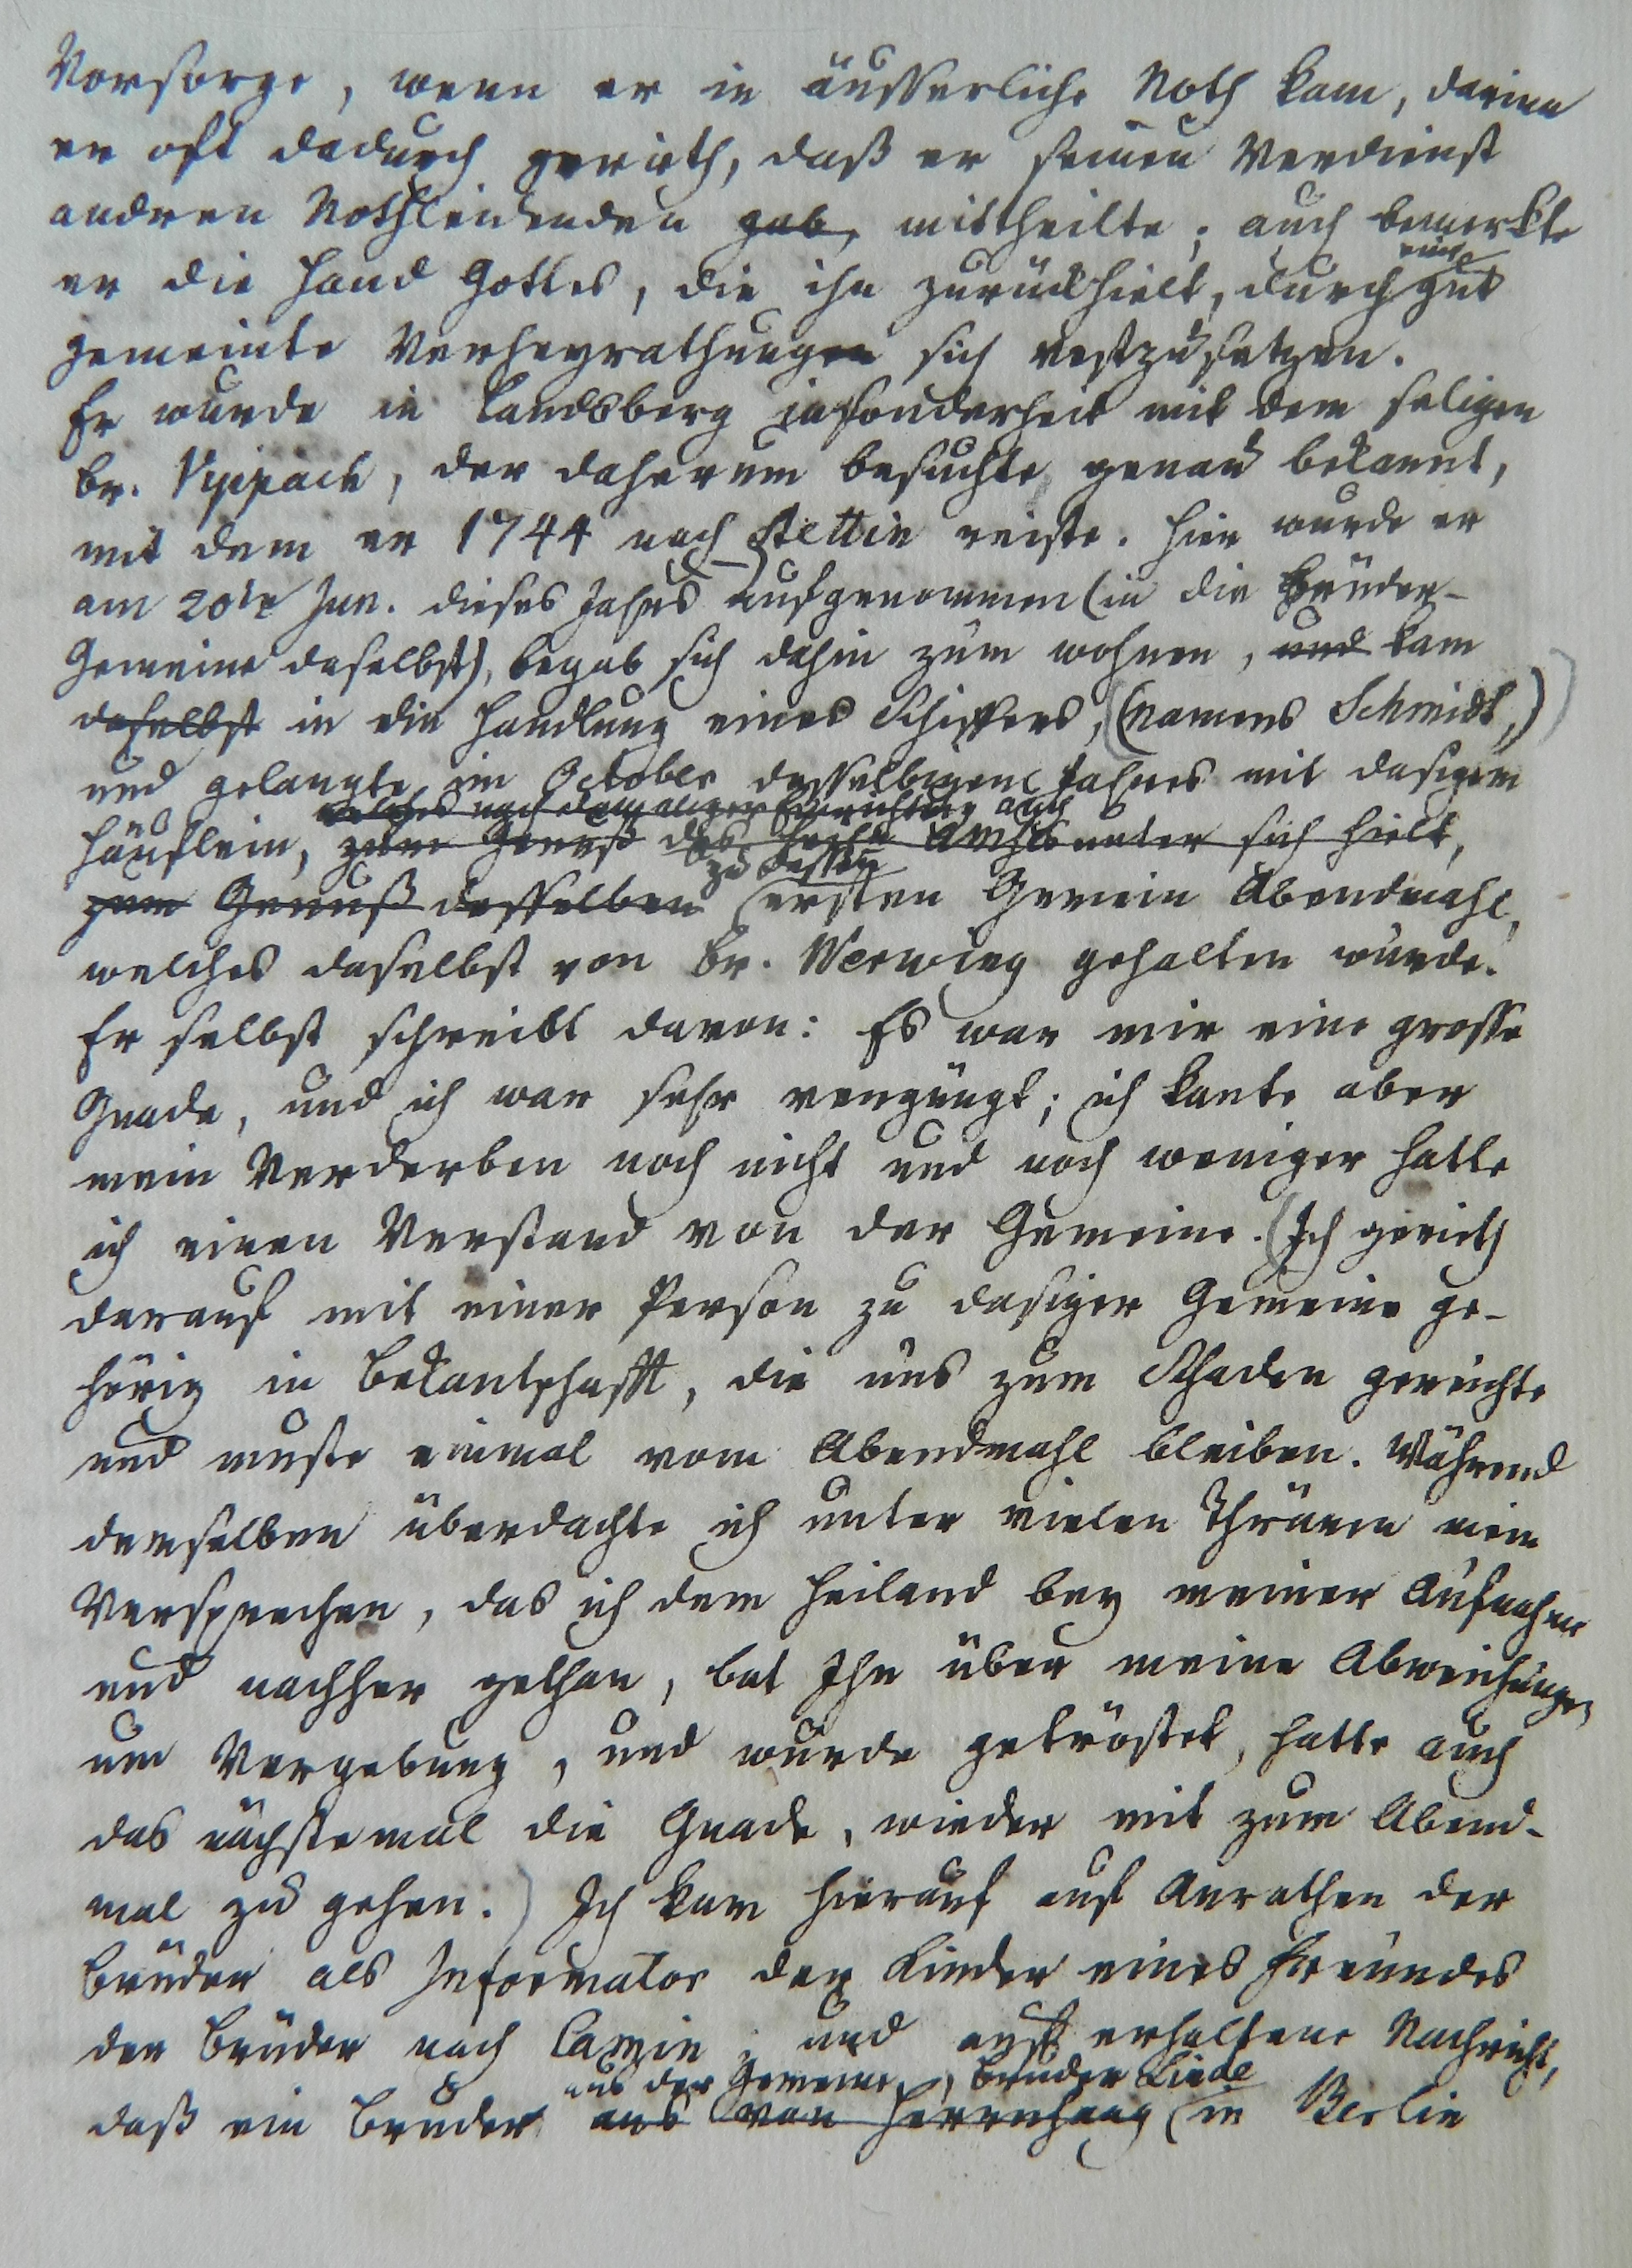 Vorsorge, wenn er in äusserliche Noth kam, darinn
er oft dadurch gerieth, daß er seinen Verdienst
andren Nothleidenden gab, mittheilte; auch bemerkte
er die Hand Gottes, die ihn zurückhielt, durch eine gut
gemeinte Verheyrathungen sich vestzusetzen.
Er wurde in Landsberg insonderheit mit dem seligen
Br. Vippach, der daherum besuchte genau bekannt,
mit dem er 1744 nach Stettin reiste. Hier wurde er
am 20ten Jun. dieses Jahrs aufgenommen (in die Brüder-
Gemeine daselbst), begab sich dahin zum wohnen, und kam
daselbst in die Handlung eines Schiffers, (namens Schmidt,)
und gelangte im October desselbigen Jahres mit dasigem
welches nach damaliger Einrichtung
Häuflein, zum Genuß des unter sich hielt,
zu dessen
zum Genuß desselben ersten Gemein Abendmahl,
welches daselbst von Br. Werwing gehalten wurde.
Er selbst schreibt davon: Es war mir eine grosse
Gnade, und ich war sehr vergnügt; ich kante aber
mein Verderben noch nicht und noch weniger hatte
ich einen Verstand von der Gemeine. (Ich gerieth
darauf mit einer Person zu dasiger Gemeine ge-
hörig in Bekantschafft, die uns zum Schaden gereichte
und muste einmal vom Abendmahl bleiben. Während
demselben überdachte ich unter vielen Thränen mein
Versprechen, das ich dem Heiland bey meiner Aufnahme
und nachher gethan, bat Ihn über meine Abweichungen
um Vergebung, und wurde getröstet, hatte auch
das nächstemal die Gnade, wieder mit zum Abend-
mal zu gehen.) Ich kam hierauf auf Anrathen der
Brüder als Informator der Kinder eines Freundes
der Brüder nach Camin; und auf erhaltene Nachricht,
aus der Gemeine, Bruder Liede
daß ein Bruder aus von Herrnhaag in Berlin